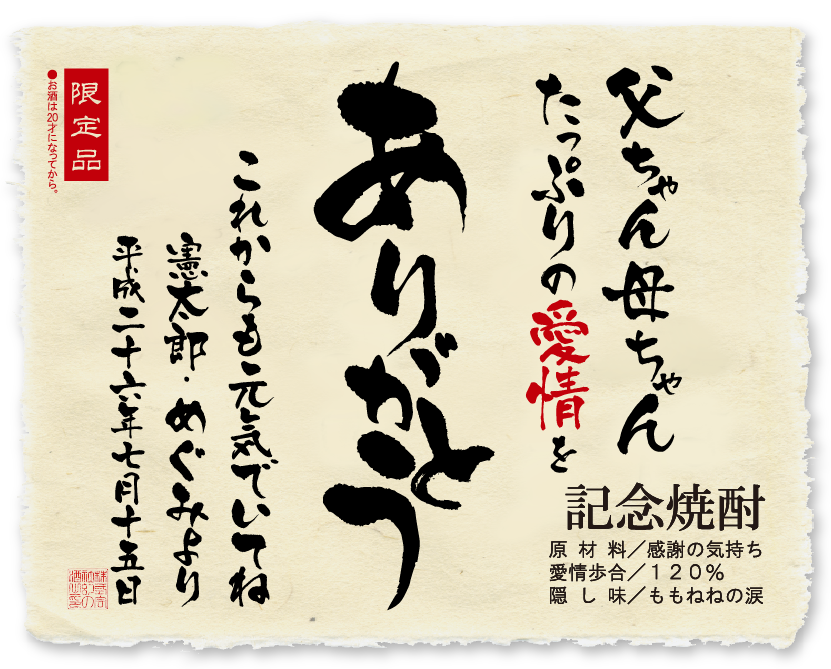 父ちゃん母ちゃん
たっぷりの愛情を
ありがとう
これからも元気でいてね
憲太郎・めぐみより
平成二十六年七月十五日
限定品
●お酒は20才になってから。
記念焼酎
原材料／感謝の気持ち
愛情歩合／120%
隠し味／ももねねの涙